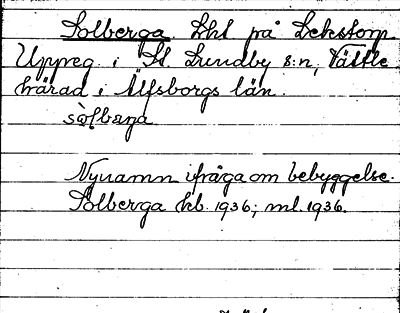 Solberga Lht på Lekstorp
Uppreg. i St. Lundby s:n, Vättle
härad i Älfsborgs län.
Nynamn ifråga om bebyggelse.
Solberga kb. 1936; ml. 1936.